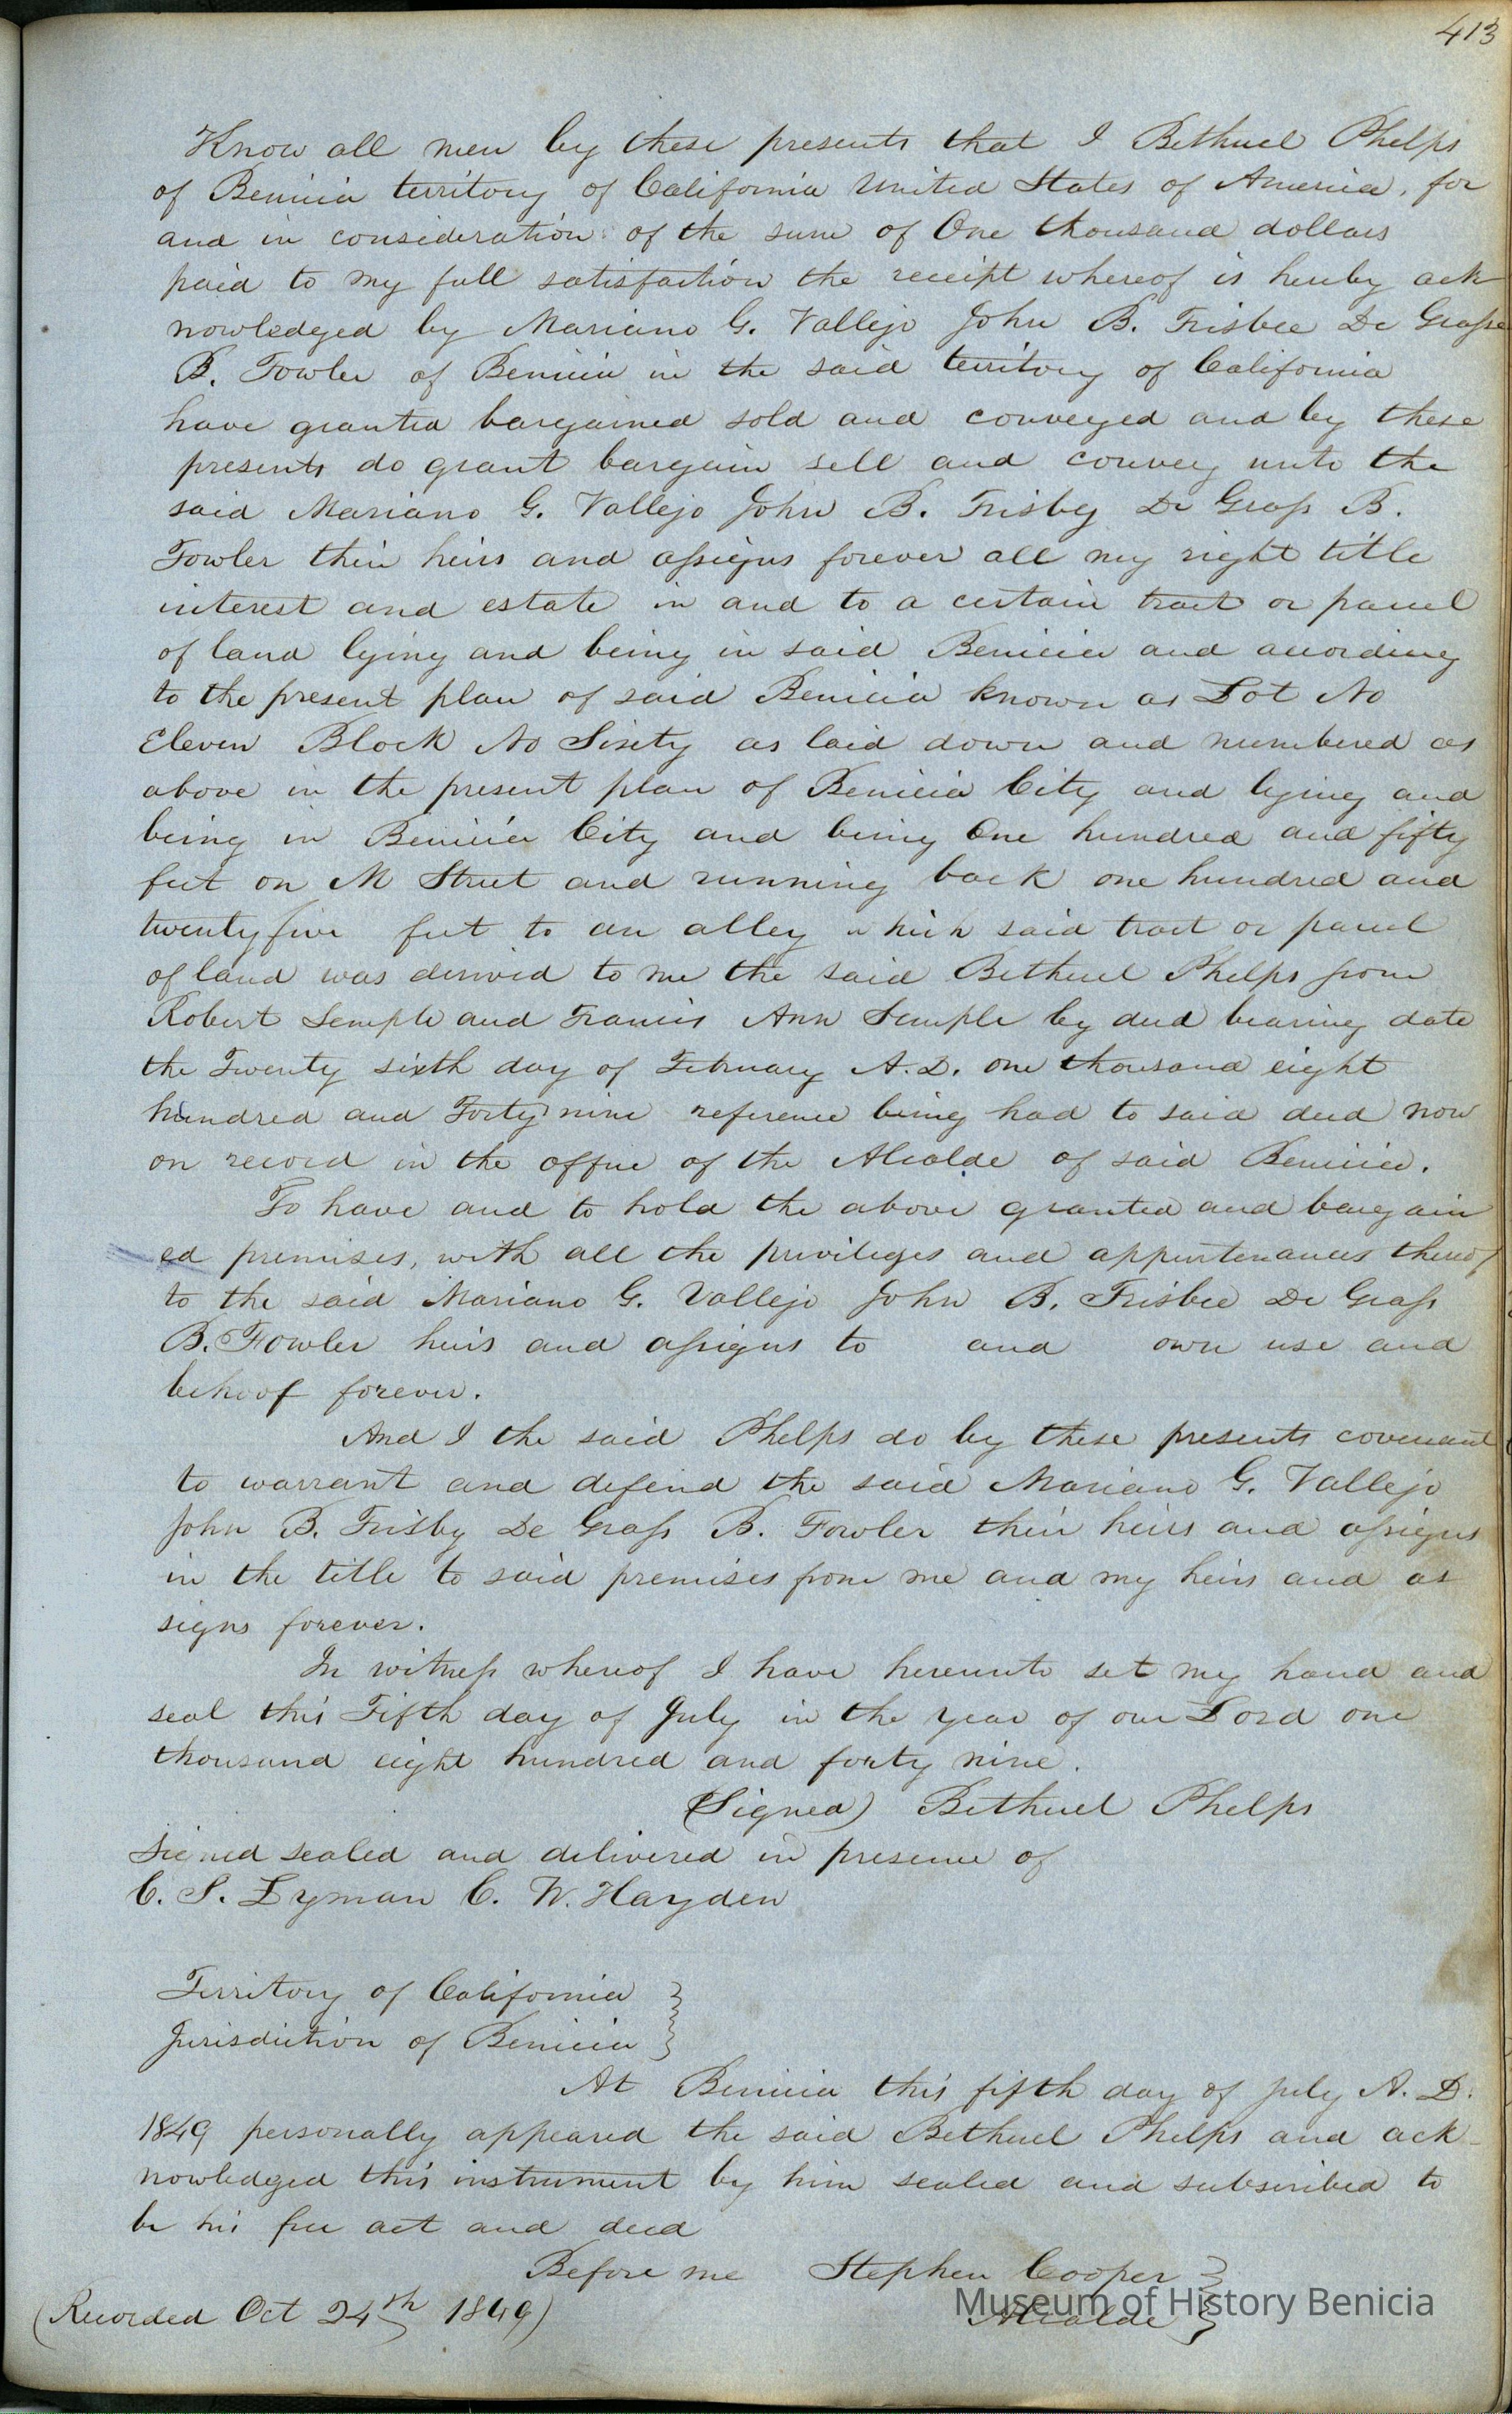 413
Know all men by these presents that I Bethuel Phelps
of Benicia territory of California United States of America, for
and in consideration of the sum of One thousand dollars
paid to my full satisfaction the receipt whereof is hereby ack
nowledged by Mariano G. Vallejo John B. Frisbee De Grasse
B. Fowler of Benicia in the said territory of California
have granted bargained sold and conveyed and by these
presents do grant bargain sell and convey unto the
said Mariano G. Vallejo John B. Frisby De Grass B.
Fowler their heirs and assigns forever all my right title
interest and estate in and to a certain tract or parcel
of land lying and being in said Benicia and according
to the present plan of said Benicia known as Lot No
Eleven Block No Sixty as laid down and numbered as
above in the present plan of Benicia City and lying and
being in Benicia City and being One hundred and fifty
feet on M Street and running back one hundred and
twenty five feet to an alley which said tract or parcel
of land was derived to me the said Bethuel Phelps from
Robert Semple and Francis Ann Semple by deed bearing date
the Twenty sixth day of February A.D. one thousand eight
hundred and Forty nine reference being had to said deed now
on record in the office of the Alcalde of said Benicia.
To have and to hold the above granted and bargain
ed premises, with all the privileges and appurtenances thereof
to the said Mariano G. Vallejo John B. Frisbee De Grass
B. Fowler heirs and assigns to and own use and
behoof forever.
And I the said Phelps do by these presents covenant
to warrant and defend the said Mariano G. Vallejo
John B. Frisby De Grass B. Fowler their heirs and assigns
in the title to said premises from me and my heirs and as
signs forever.
In witness whereof I have hereunto set my hand and
seal this Fifth day of July in the year of our Lord one
thousand eight hundred and forty nine.
(Signed) Bethuel Phelps
Signed sealed and delivered in presence of
C. S. Lyman C. W. Hayden
Territory of California }
Jurisdiction of Benicia }
At Benicia this fifth day of July A. D.
1849 personally appeared the said Bethuel Phelps and ack-
nowledged this instrument by him sealed and subscribed to
be his free act and deed
Before me Stephen Cooper }
(Recorded Oct 24th 1849) Alcalde }
Museum of History Benicia